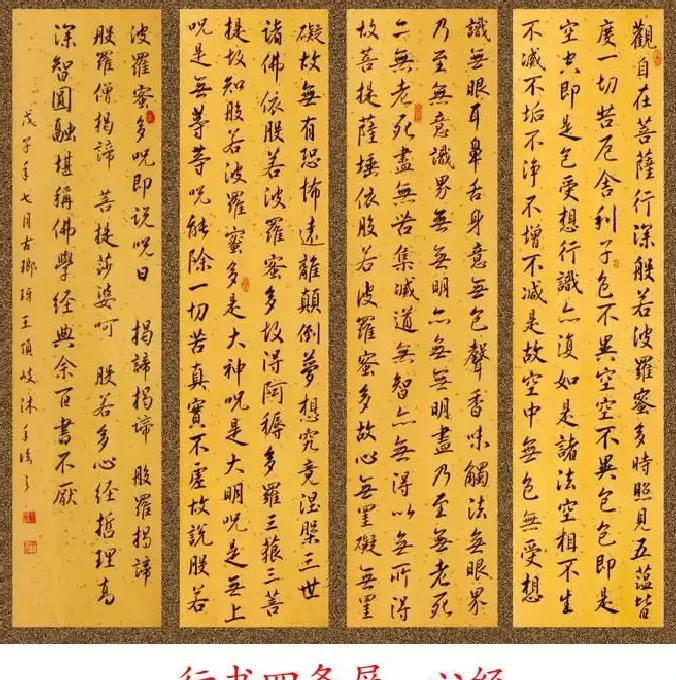 觀自在菩薩行深般若波羅蜜多時照見五蘊皆
度一切苦厄舍利子色不異空空不異色色即是
空空即是色受想行識亦復如是諸法空相不生
不滅不垢不淨不增不減是故空中無色無受想
識無眼耳鼻舌身意無色聲香味觸法無眼界
乃至無意識界無無明亦無無明盡乃至無老死
亦無老死盡無苦集滅道無智亦無得以無所得
故菩提薩埵依般若波羅蜜多故心無罣礙無罣
礙故無有恐怖遠離顛倒夢想究竟涅槃三世
諸佛依般若波羅蜜多故得阿耨多羅三藐三菩
提故知般若波羅蜜多是大神咒是大明咒是無上
咒是無等等咒能除一切苦真實不虛故說般若
波羅蜜多咒即说咒曰 揭諦揭諦 般羅揭諦
般羅僧揭諦 菩提莎婆呵 般若多心经哲理高
深智圓融堪稱佛學经典余百書不厭
戊子年七月古瑯琊王頂岐沐手
行书四条屏 心经